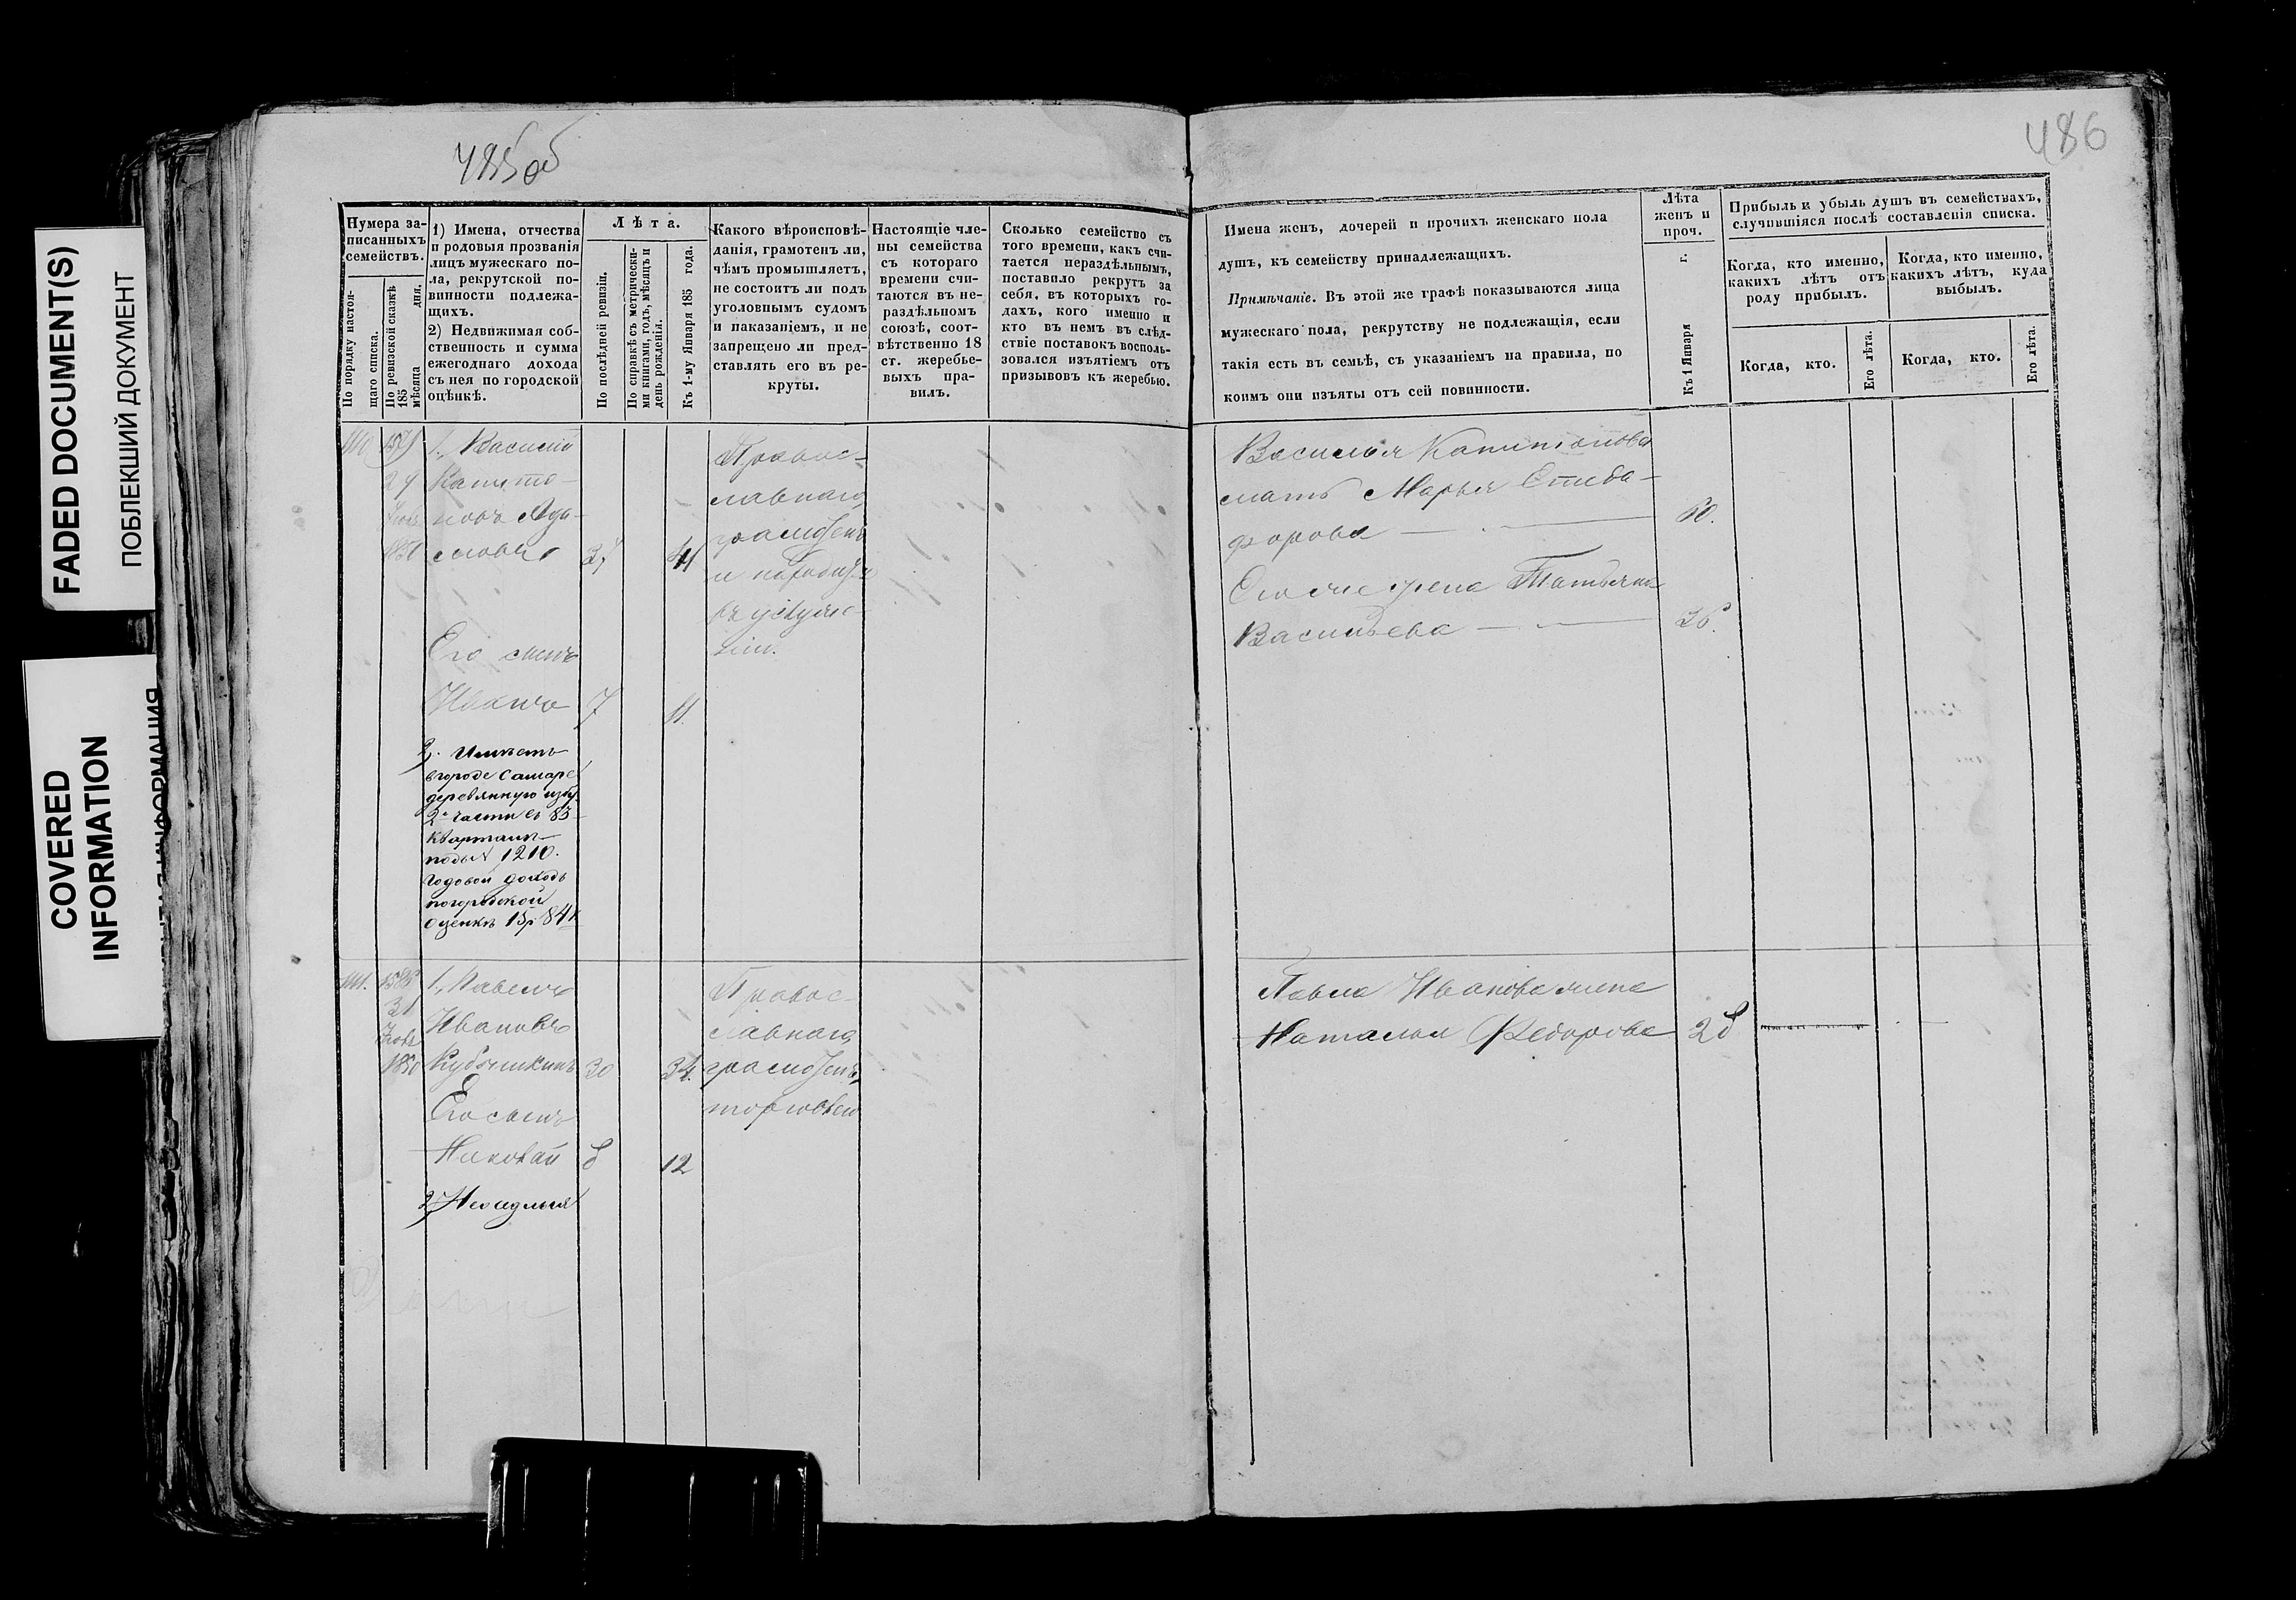 FADED DOCUMENT(S)
ПОБЛЕКШИЙ ДОКУМЕНТ
COVERED
INFORMATION
485об
486
Нумера за-
писанныхъ
семействъ.
По порядку настоя-
щаго списка.
По ревизской сказкѣ
185 дня,
мѣсяца
1) Имена, отчества
и родовыя прозванія
лицъ мужескаго по-
ла, рекрутской по-
винности подлежа-
щихъ.
2) Недвижимая соб-
ственность и сумма
ежегоднаго дохода
съ нея по городской
оцѣнкѣ.
Лѣта.
По послѣдней ревизіи.
По справкѣ съ метрически-
ми книгами, годъ, мѣсяцъ и
день рожденія.
Къ 1-му Января 185 года.
Какого вѣроисповѣ-
данія, грамотенъ ли,
чѣмъ промышляетъ,
не состоитъ ли подъ
уголовнымъ судомъ
и наказаніемъ, и не
запрещено ли пред-
ставлять его въ ре-
круты.
Настоящіе чле-
ны семейства
съ котораго
времени счи-
таются въ не-
раздѣльномъ
союзѣ, соот-
вѣтственно 18
ст. жеребье-
выхъ пра-
вилъ.
Сколько семейство съ
того времени, какъ счи-
тается нераздѣльнымъ,
поставило рекрутъ за
себя, въ которыхъ го-
дахъ, кого именно и
кто въ немъ въ слѣд-
ствіе поставокъ восполь-
зовался изъятіемъ отъ
призывовъ къ жеребью.
Имена женъ, дочерей и прочихъ женскаго пола
душъ, къ семейству принадлежащихъ.
Примѣчаніе. Въ этой же графѣ показываются лица
мужескаго пола, рекрутству не подлежащія, если
такія есть въ семьѣ, съ указаніемъ на правила, по
коимъ они изъяты отъ сей повинности.
Лѣта
женъ и
проч.
Къ 1 Января г.
Прибыль и убыль душъ въ семействахъ,
случившіяся послѣ составленія списка.
Когда, кто именно,
какихъ лѣтъ отъ
роду прибылъ.
Когда, кто именно,
какихъ лѣтъ, куда
выбылъ.
Когда, кто.
Его лѣта.
Когда, кто.
Его лѣта.
1., Василій
Капито-
новъ Ада-
мовъ 37 41
1850
Православнаго
грамотенъ
Его сынъ
Иванъ 7 11.
2. Имѣетъ
въ городе Самаре
деревянную избу
2й части въ 83
Кварталѣ
подъ № 1210.
годовой доходъ
по городской
оценкѣ 15р 84к
Василья Капитонова
мать Марья
60.
Его же жена Татьяна
Васильева 36.
1586
1850
1., Павелъ
Ивановъ
30 34.
Его сынъ
Николай 8 12
2,
Православнаго
грамотенъ,
торговлею
Павла Иванова жена
Наталья Федорова 28